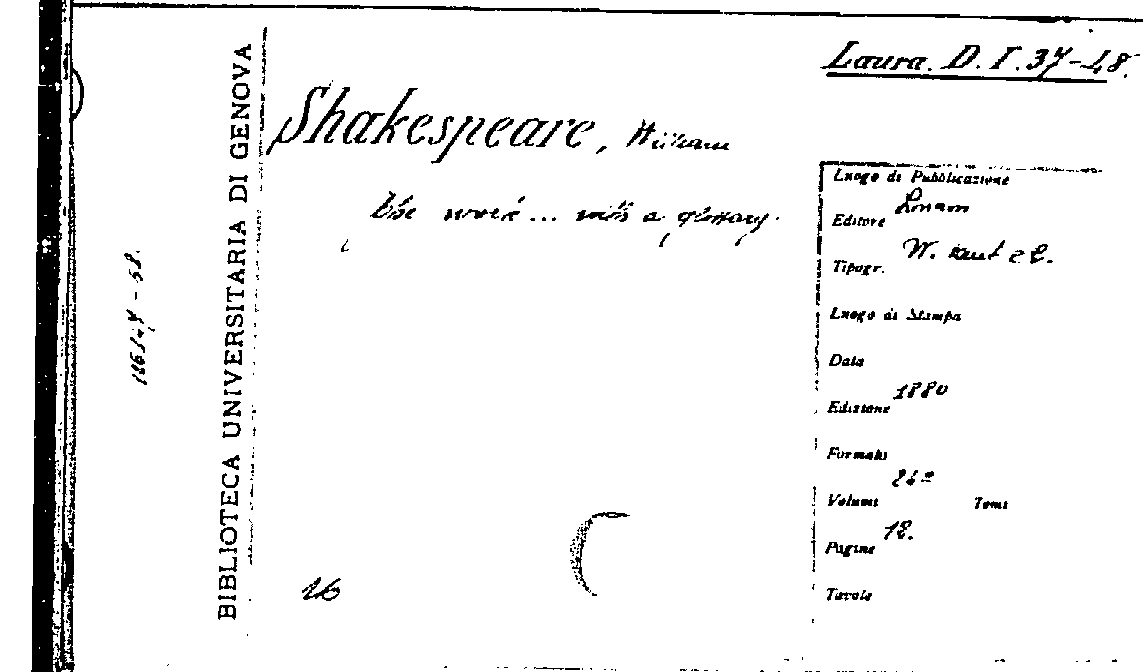 Laura. D. I. 37-48.
BIBLIOTECA UNIVERSITARIA DI GENOVA
Shakespeare, William
The works ... with a glossary.
Luogo di Pubblicazione
London
Editore
W. Kent e C.
Tipogr.
Luogo di Stampa
Data
1880
Edizione
Formato
24°
Volumi Tomi
12.
Pagine
Tavole
16